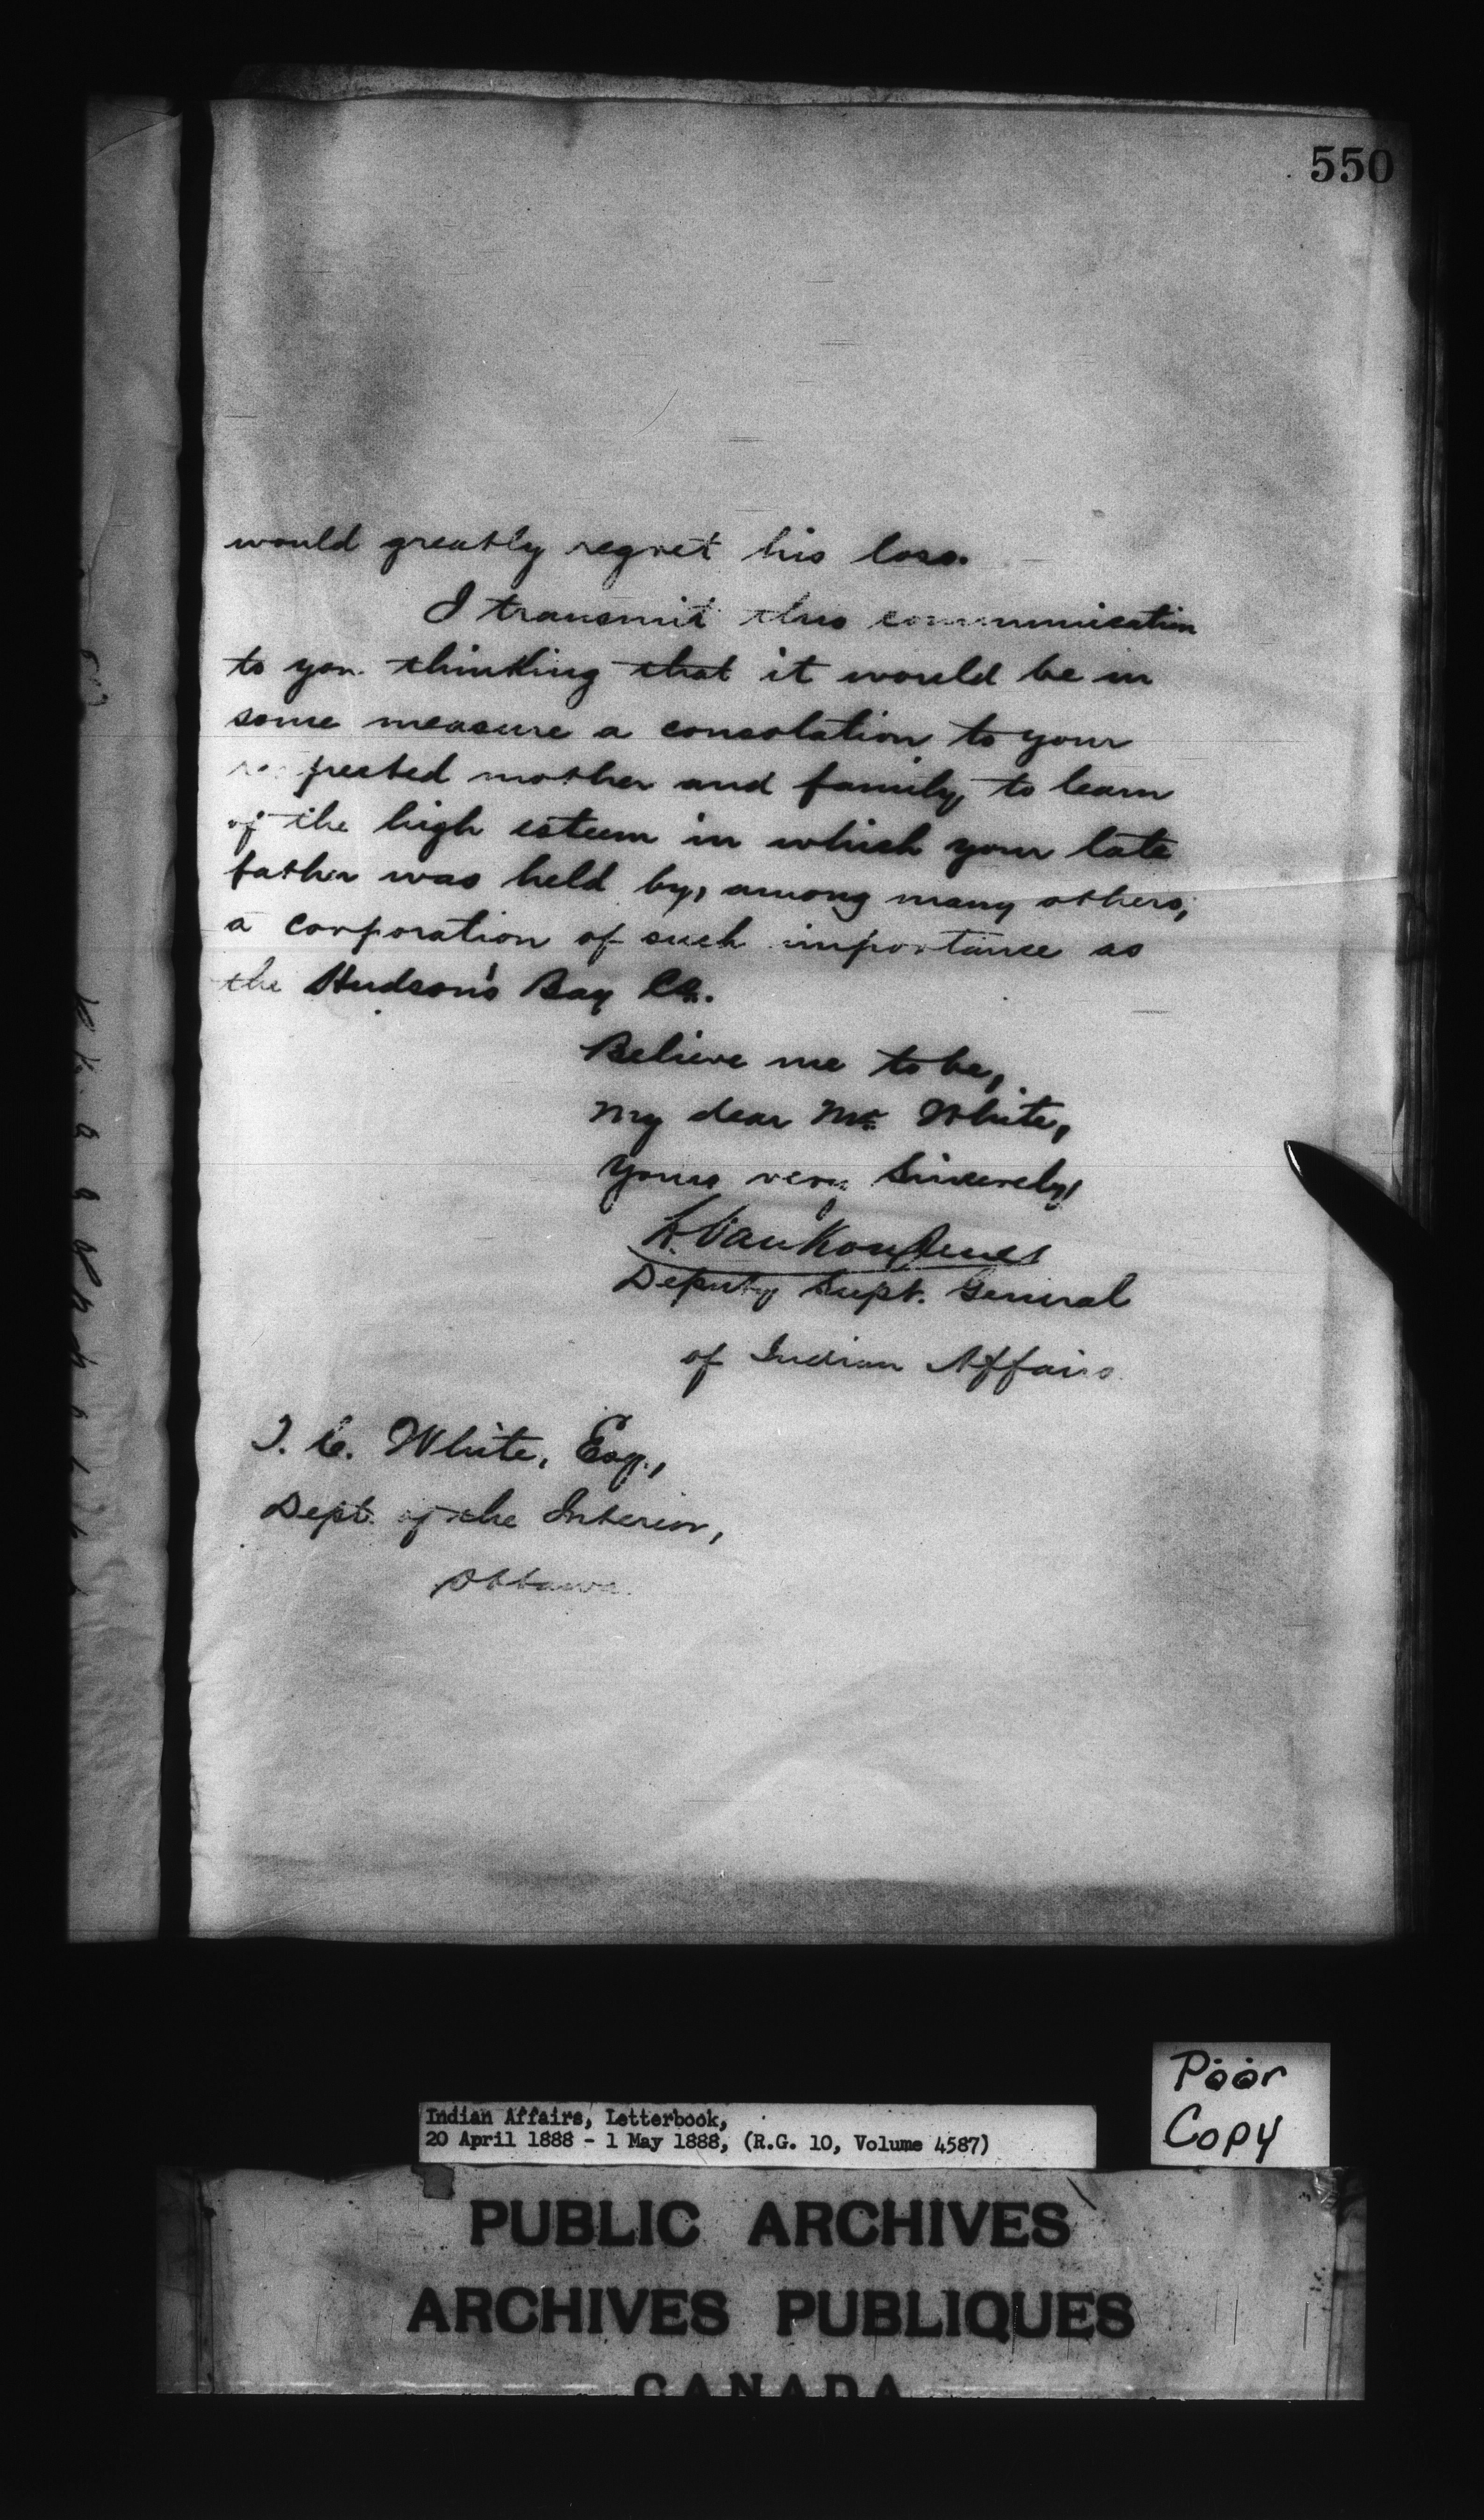 550
would greatly regret his loss.
I transmit this communication
to you thinking that it would be in
some measure a consolation to your
respected mother and family, to learn
of the high esteem in which your late
father was held by, among many others,
a corporation of such importance as
the Hudson's Bay Co.
Believe me to be,
My dear Mr. White,
Yours very Sincerely,
L. Vankoughnet
Deputy Supt. General
of Indian Affairs
White, Esq.,
Dept. of the Interior,
Ottawa.
Poor
Copy
Indian Affairs, Letterbook,
20 April 1888 - 1 May 1888, (R.G. 10, Volume 4587)
PUBLIC ARCHIVES
ARCHIVES PUBLIQUES
CANADA